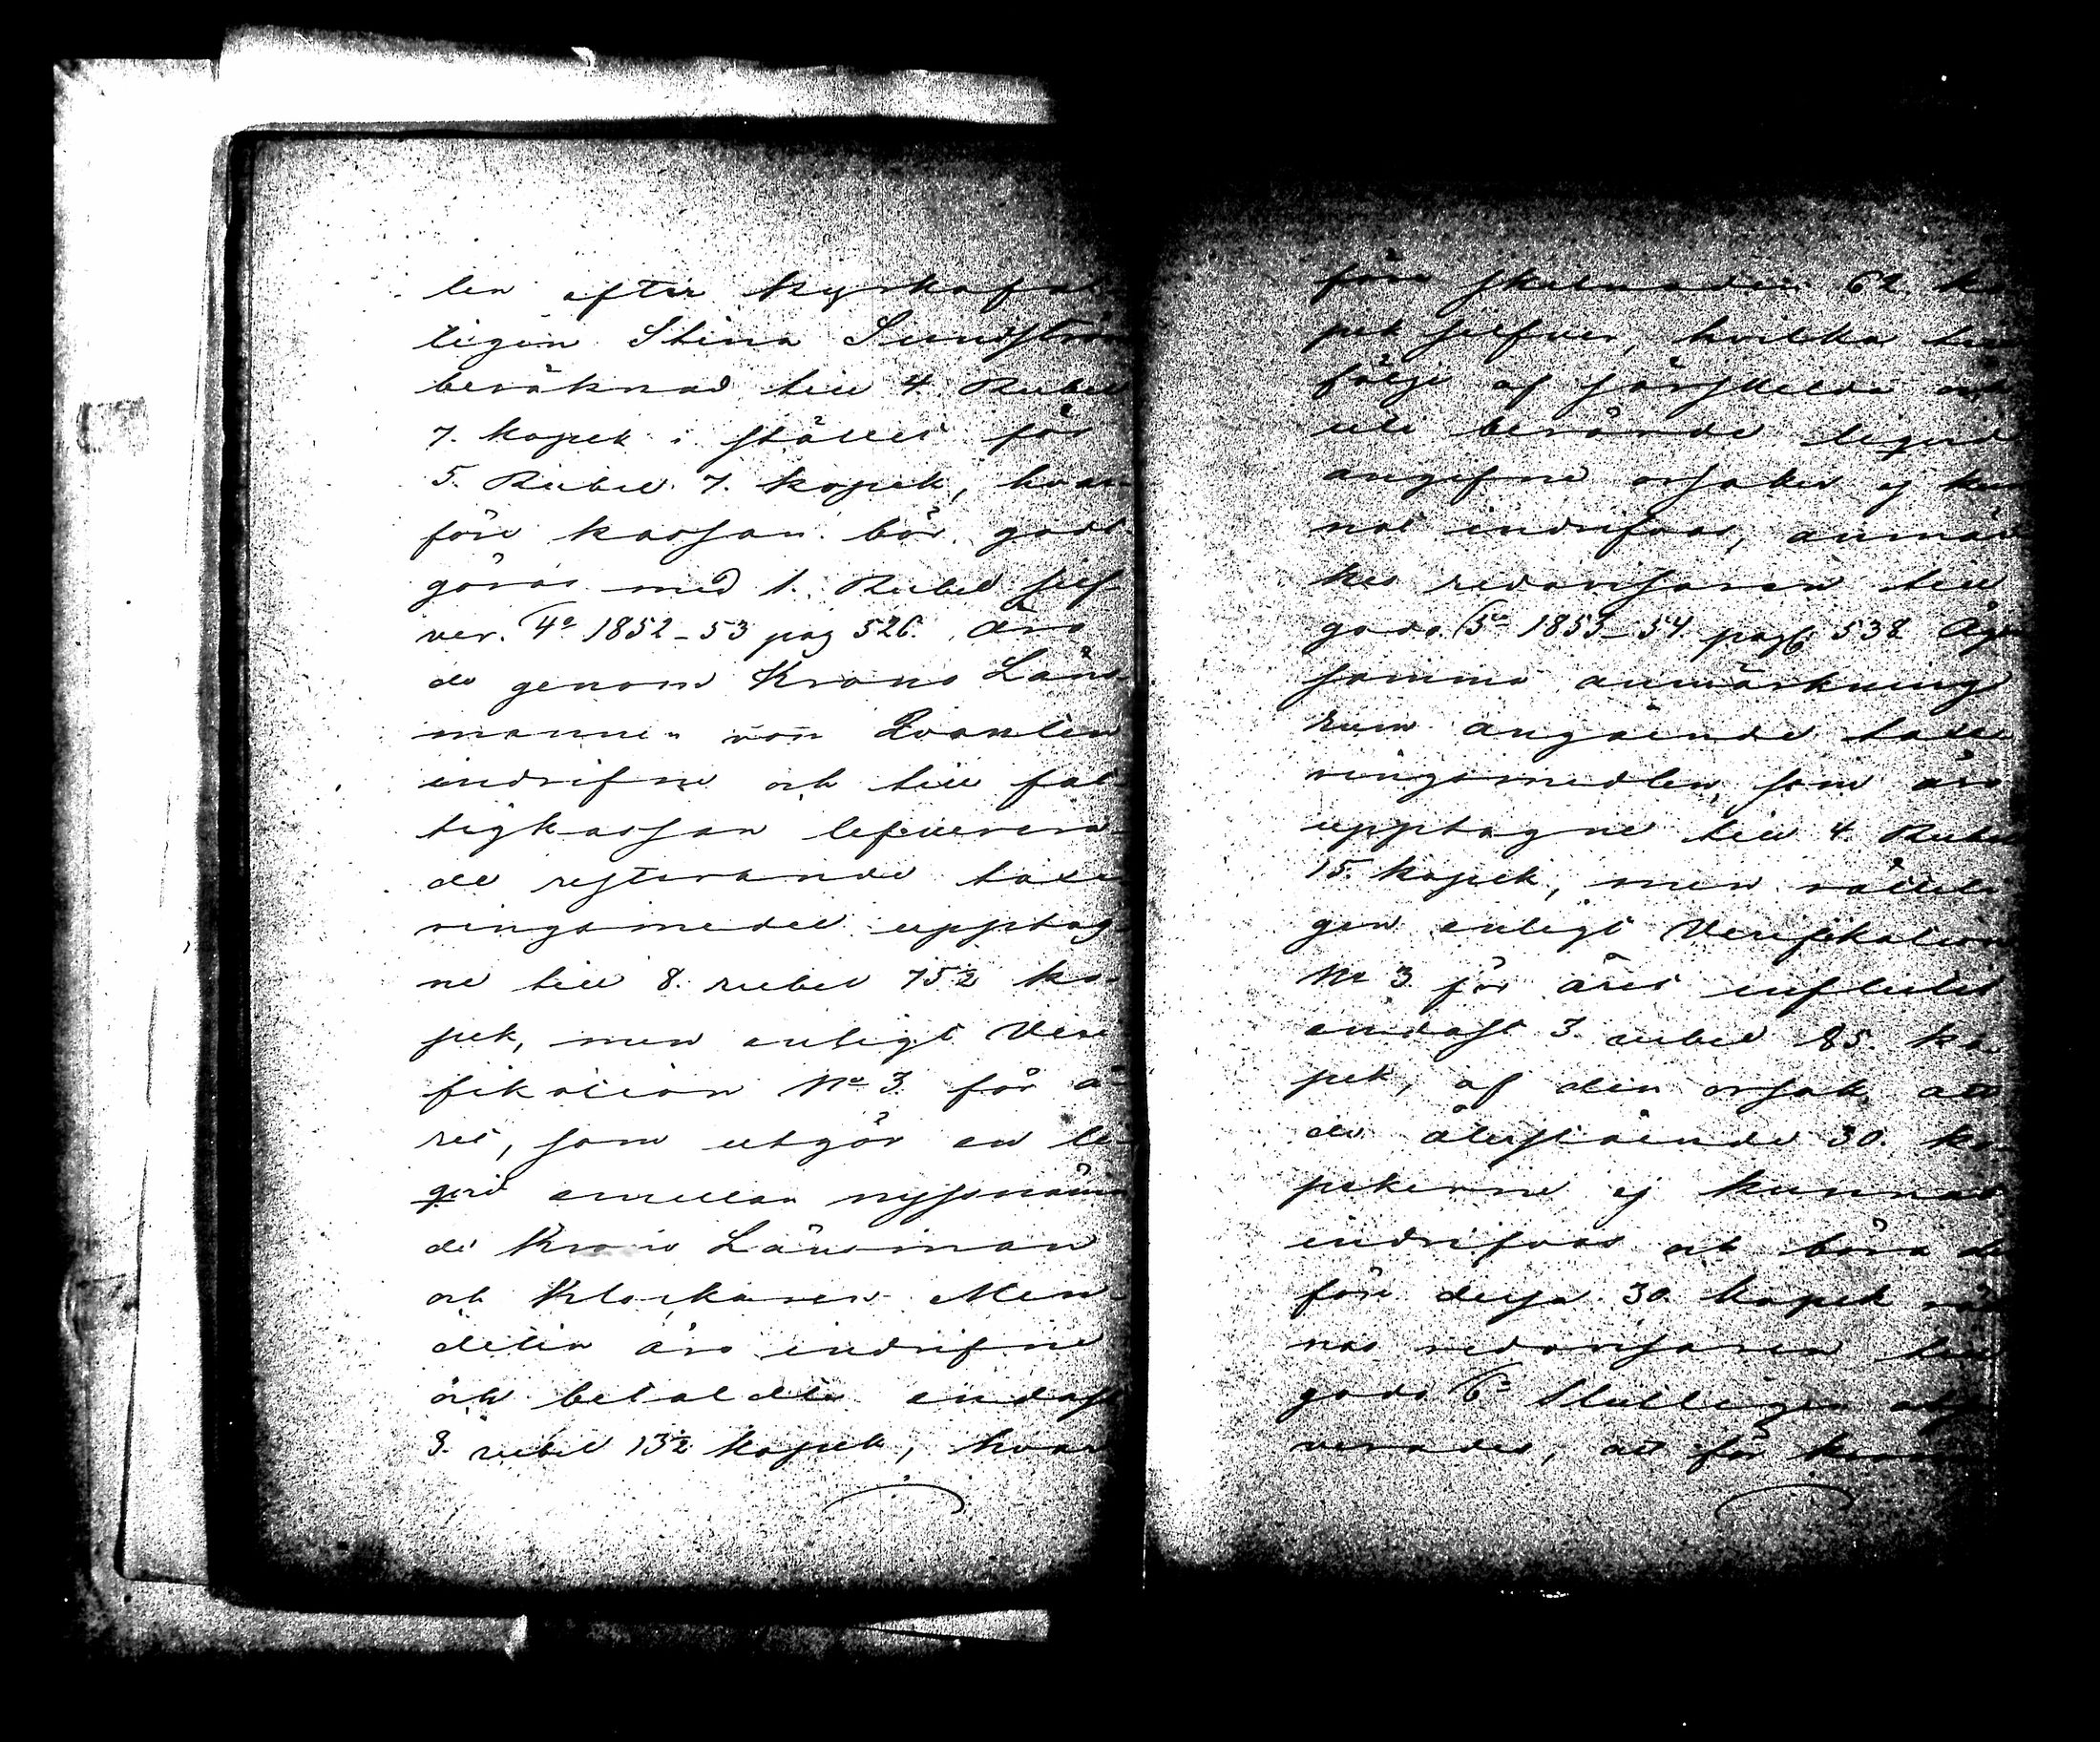 len efter Kyrkofat-
tigen Stina Sundström
beräknad till 4. Rubel
7. kopek i stället för
5. Rubel 7. kopek, hvar-
före kassan bör godt-
göras med 1. Rubel silf-
ver. 4o 1852-53 pag 526. Äro
de genom Krono Läns-
mannen von Qvanten
indrifne och till fat-
tigkassan leverera-
de resterande taxe-
ringsmedel upptag-
ne till 8. rubel 75 2 ko-
pek, men enligt Veri-
fikation No 3. för å-
ret, som utgör en le-
qvid emellan nyssnämn-
de Krono Länsman
och Klockaren Men-
delin äro indrifne
och betalde endast
8. rubel 13 2 kopek, hvar-
före skilnaden 62. ko-
pek silfver, hvilka till
följe af särskilda och
uti berörde liqvid
angifne orsaker ej kun-
nat indrifvas, anmär-
kes redovisaren till
godo. 5o 1853-54. pag. 538. Äger
samma anmärknings
rum angående taxe-
ringsmedlen, som äro
upptagne till 4. Rubel
15. kopek, men rätteli-
gen enligt Verifikation
No 3 för året influtit
endast 3. rubel 85. ko-
pek, af den orsak, att
de återstående 30. ko-
pekerne ej kunnat
indrifvas och böra der-
före dessa 30. kopek räk-
nas redovisaren till
godo 6o Slutligen
att för